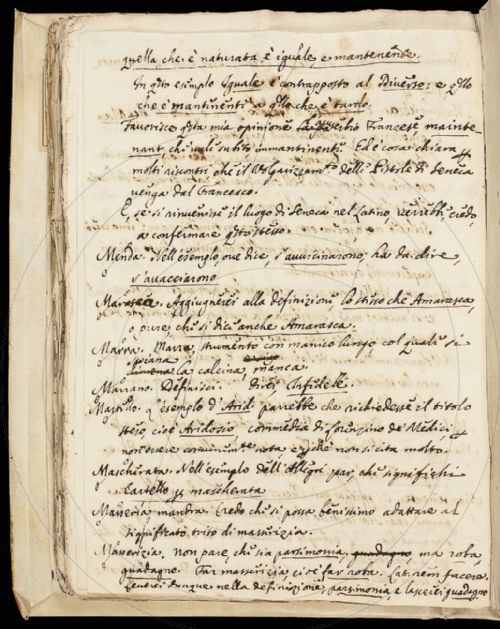 quella che è naturata è iguale, e mantenente.
In qsto esimplo Iguale è contrapposto al Diverso: e qllo
che è mantinente a qllo che è tardo.
Favorisce qsta mia opinione Franzese mainte-
nant, chi vale subito immantinenti. Ed è cosa chiara
molti riscontri che il Volgarizzamto delle Pistole di Seneca
venga dal Francesco.
E, se si rinvenisse il luogo di Seneca nel Latino, verrebbe, credo,
a confermare qsto stesso.
Menda. Nell'esemplo, ove dice, s'avvicinarono, ha da dire,
s'avacciarono.
Marasca. Aggiugnerei alla definizione, lo stisso che Amarasca,
o pure, chi si dici anche Amarasca.
Marra. Marra, strumento con manico lungo, col quale si
spiana
la calcina, manca.
Marrano. Definirei. direi Infedele.
Martello. q esemplo d'Arid. parrebbe che richiedesse il titolo
stesso, cioè Aridosio commedia di Lorenzino de' Medici,
non essere comunemte nota e pchè non si cita molto.
Mascherata. Nell'esimplo dell'Allegri par, chi significhi
Cartello p mascherata
Masseria mandra. Credo chi si possa benissimo adattare al
significato trito di massirizia.
Masserizia. non pare, chi sia parsimonia, guadagno, ma roba,
guadagno. Far massirizia, cioè far roba. Lat. rem facere.
Leverei dunque nella definizione, parsimonia, e lascerei guadagno